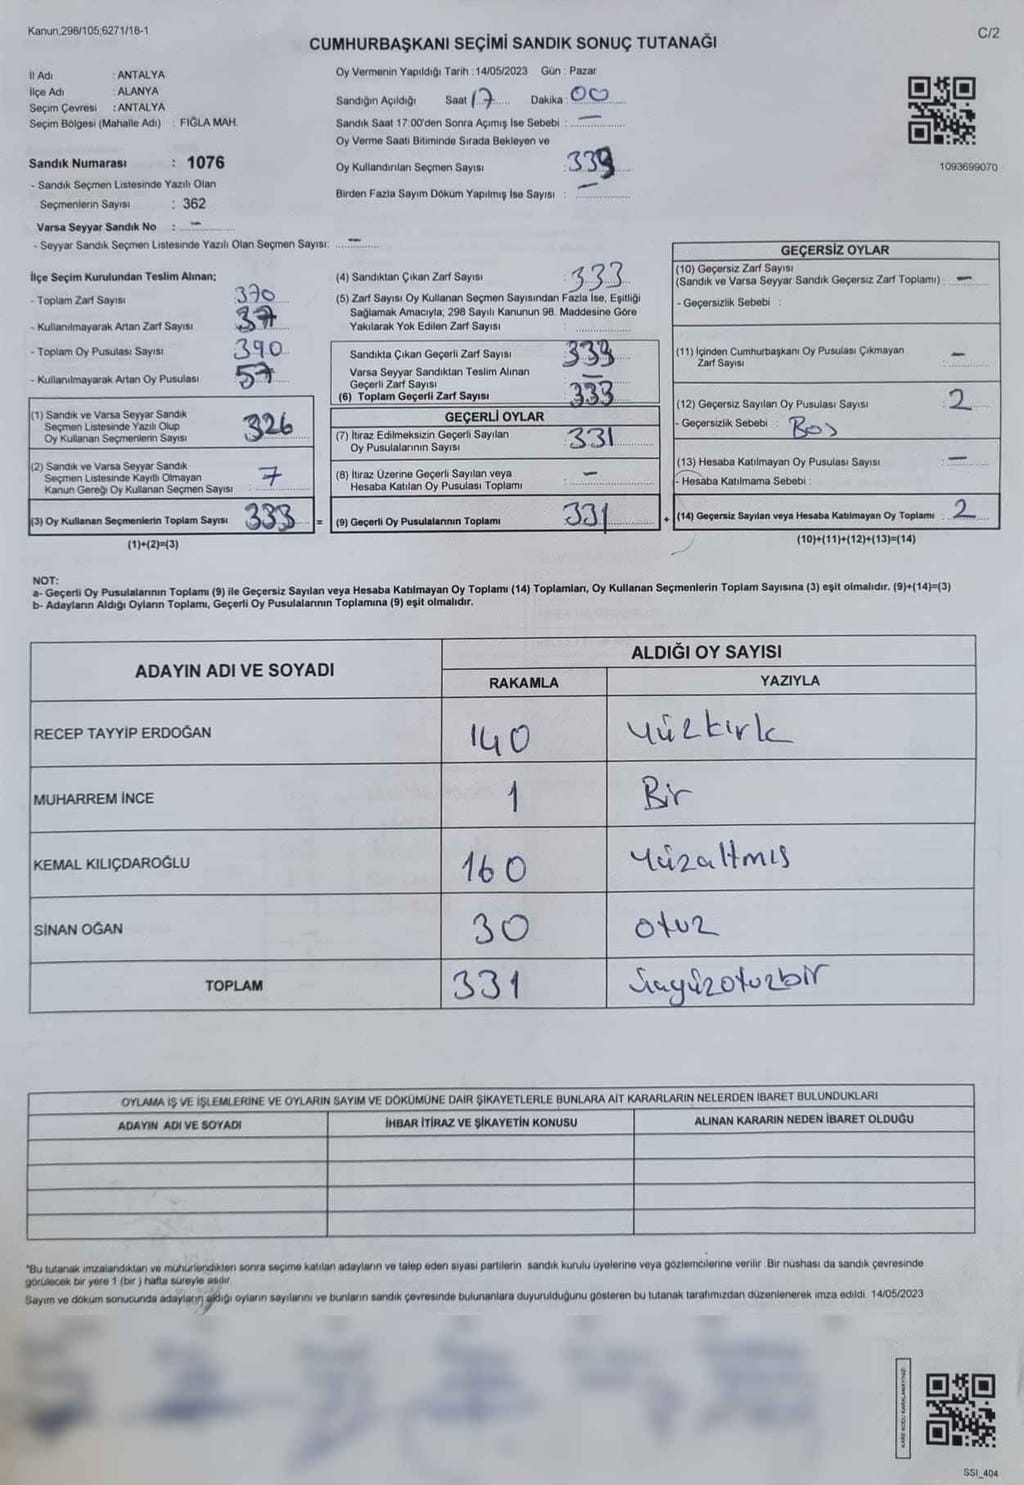 Kanun;298/105;6271/18-1
C/2
CUMHURBAŞKANI SEÇİMİ SANDIK SONUÇ TUTANAĞI
İl Adı : ANTALYA
İlçe Adı : ALANYA
Seçim Çevresi : ANTALYA
Seçim Bölgesi (Mahalle Adı) : FIĞLA MAH.
Sandık Numarası : 1076
- Sandık Seçmen Listesinde Yazılı Olan
Seçmenlerin Sayısı : 362
Varsa Seyyar Sandık No : —
- Seyyar Sandık Seçmen Listesinde Yazılı Olan Seçmen Sayısı: —
Oy Vermenin Yapıldığı Tarih : 14/05/2023 Gün : Pazar
Sandığın Açıldığı Saat 17 Dakika : 00
Sandık Saat 17:00'den Sonra Açımış İse Sebebi : —
Oy Verme Saati Bitiminde Sırada Bekleyen ve
Oy Kullandırılan Seçmen Sayısı : 333
Birden Fazla Sayım Döküm Yapılmış İse Sayısı : —
1093699070
İlçe Seçim Kurulundan Teslim Alınan;
- Toplam Zarf Sayısı : 370
- Kullanılmayarak Artan Zarf Sayısı : 37
- Toplam Oy Pusulası Sayısı : 390
- Kullanılmayarak Artan Oy Pusulası : 57
(1) Sandık ve Varsa Seyyar Sandık
Seçmen Listesinde Yazılı Olup
Oy Kullanan Seçmenlerin Sayısı : 326
(2) Sandık ve Varsa Seyyar Sandık
Seçmen Listesinde Kayıtlı Olmayan
Kanun Gereği Oy Kullanan Seçmen Sayısı : 7
(3) Oy Kullanan Seçmenlerin Toplam Sayısı : 333 =
(1)+(2)=(3)
(4) Sandıktan Çıkan Zarf Sayısı : 333
(5) Zarf Sayısı Oy Kullanan Seçmen Sayısından Fazla İse, Eşitliği
Sağlamak Amacıyla; 298 Sayılı Kanunun 98. Maddesine Göre
Yakılarak Yok Edilen Zarf Sayısı :
Sandıkta Çıkan Geçerli Zarf Sayısı : 333
Varsa Seyyar Sandıktan Teslim Alınan
Geçerli Zarf Sayısı : —
(6) Toplam Geçerli Zarf Sayısı : 333
GEÇERLİ OYLAR
(7) İtiraz Edilmeksizin Geçerli Sayılan
Oy Pusulalarının Sayısı : 331
(8) İtiraz Üzerine Geçerli Sayılan veya
Hesaba Katılan Oy Pusulası Toplamı : —
(9) Geçerli Oy Pusulalarının Toplamı : 331 +
GEÇERSİZ OYLAR
(10) Geçersiz Zarf Sayısı
(Sandık ve Varsa Seyyar Sandık Geçersiz Zarf Toplamı) : —
- Geçersizlik Sebebi :
(11) İçinden Cumhurbaşkanı Oy Pusulası Çıkmayan
Zarf Sayısı : —
(12) Geçersiz Sayılan Oy Pusulası Sayısı : 2
- Geçersizlik Sebebi : Boş
(13) Hesaba Katılmayan Oy Pusulası Sayısı : —
- Hesaba Katılmama Sebebi :
(14) Geçersiz Sayılan veya Hesaba Katılmayan Oy Toplamı : 2
(10)+(11)+(12)+(13)=(14)
NOT:
a- Geçerli Oy Pusulalarının Toplamı (9) ile Geçersiz Sayılan veya Hesaba Katılmayan Oy Toplamı (14) Toplamları, Oy Kullanan Seçmenlerin Toplam Sayısına (3) eşit olmalıdır. (9)+(14)=(3)
b- Adayların Aldığı Oyların Toplamı, Geçerli Oy Pusulalarının Toplamına (9) eşit olmalıdır.
ADAYIN ADI VE SOYADI
ALDIĞI OY SAYISI
RAKAMLA YAZIYLA
RECEP TAYYİP ERDOĞAN 140 Yüzkırk
MUHARREM İNCE 1 Bir
KEMAL KILIÇDAROĞLU 160 Yüzaltmış
SİNAN OĞAN 30 otuz
TOPLAM 331 üçyüzotuzbir
OYLAMA İŞ VE İŞLEMLERİNE VE OYLARIN SAYIM VE DÖKÜMÜNE DAİR ŞİKAYETLERLE BUNLARA AİT KARARLARIN NELERDEN İBARET BULUNDUKLARI
ADAYIN ADI VE SOYADI İHBAR İTİRAZ VE ŞİKAYETİN KONUSU ALINAN KARARIN NEDEN İBARET OLDUĞU
*Bu tutanak imzalandıktan ve mühürlendikten sonra seçime katılan adayların ve talep eden siyasi partilerin sandık kurulu üyelerine veya gözlemcilerine verilir. Bir nüshası da sandık çevresinde
görülecek bir yere 1 (bir ) hafta süreyle asılır.
Sayım ve döküm sonucunda adayların aldığı oyların sayılarını ve bunların sandık çevresinde bulunanlara duyurulduğunu gösteren bu tutanak tarafımızdan düzenlenerek imza edildi. 14/05/2023
SSI_404